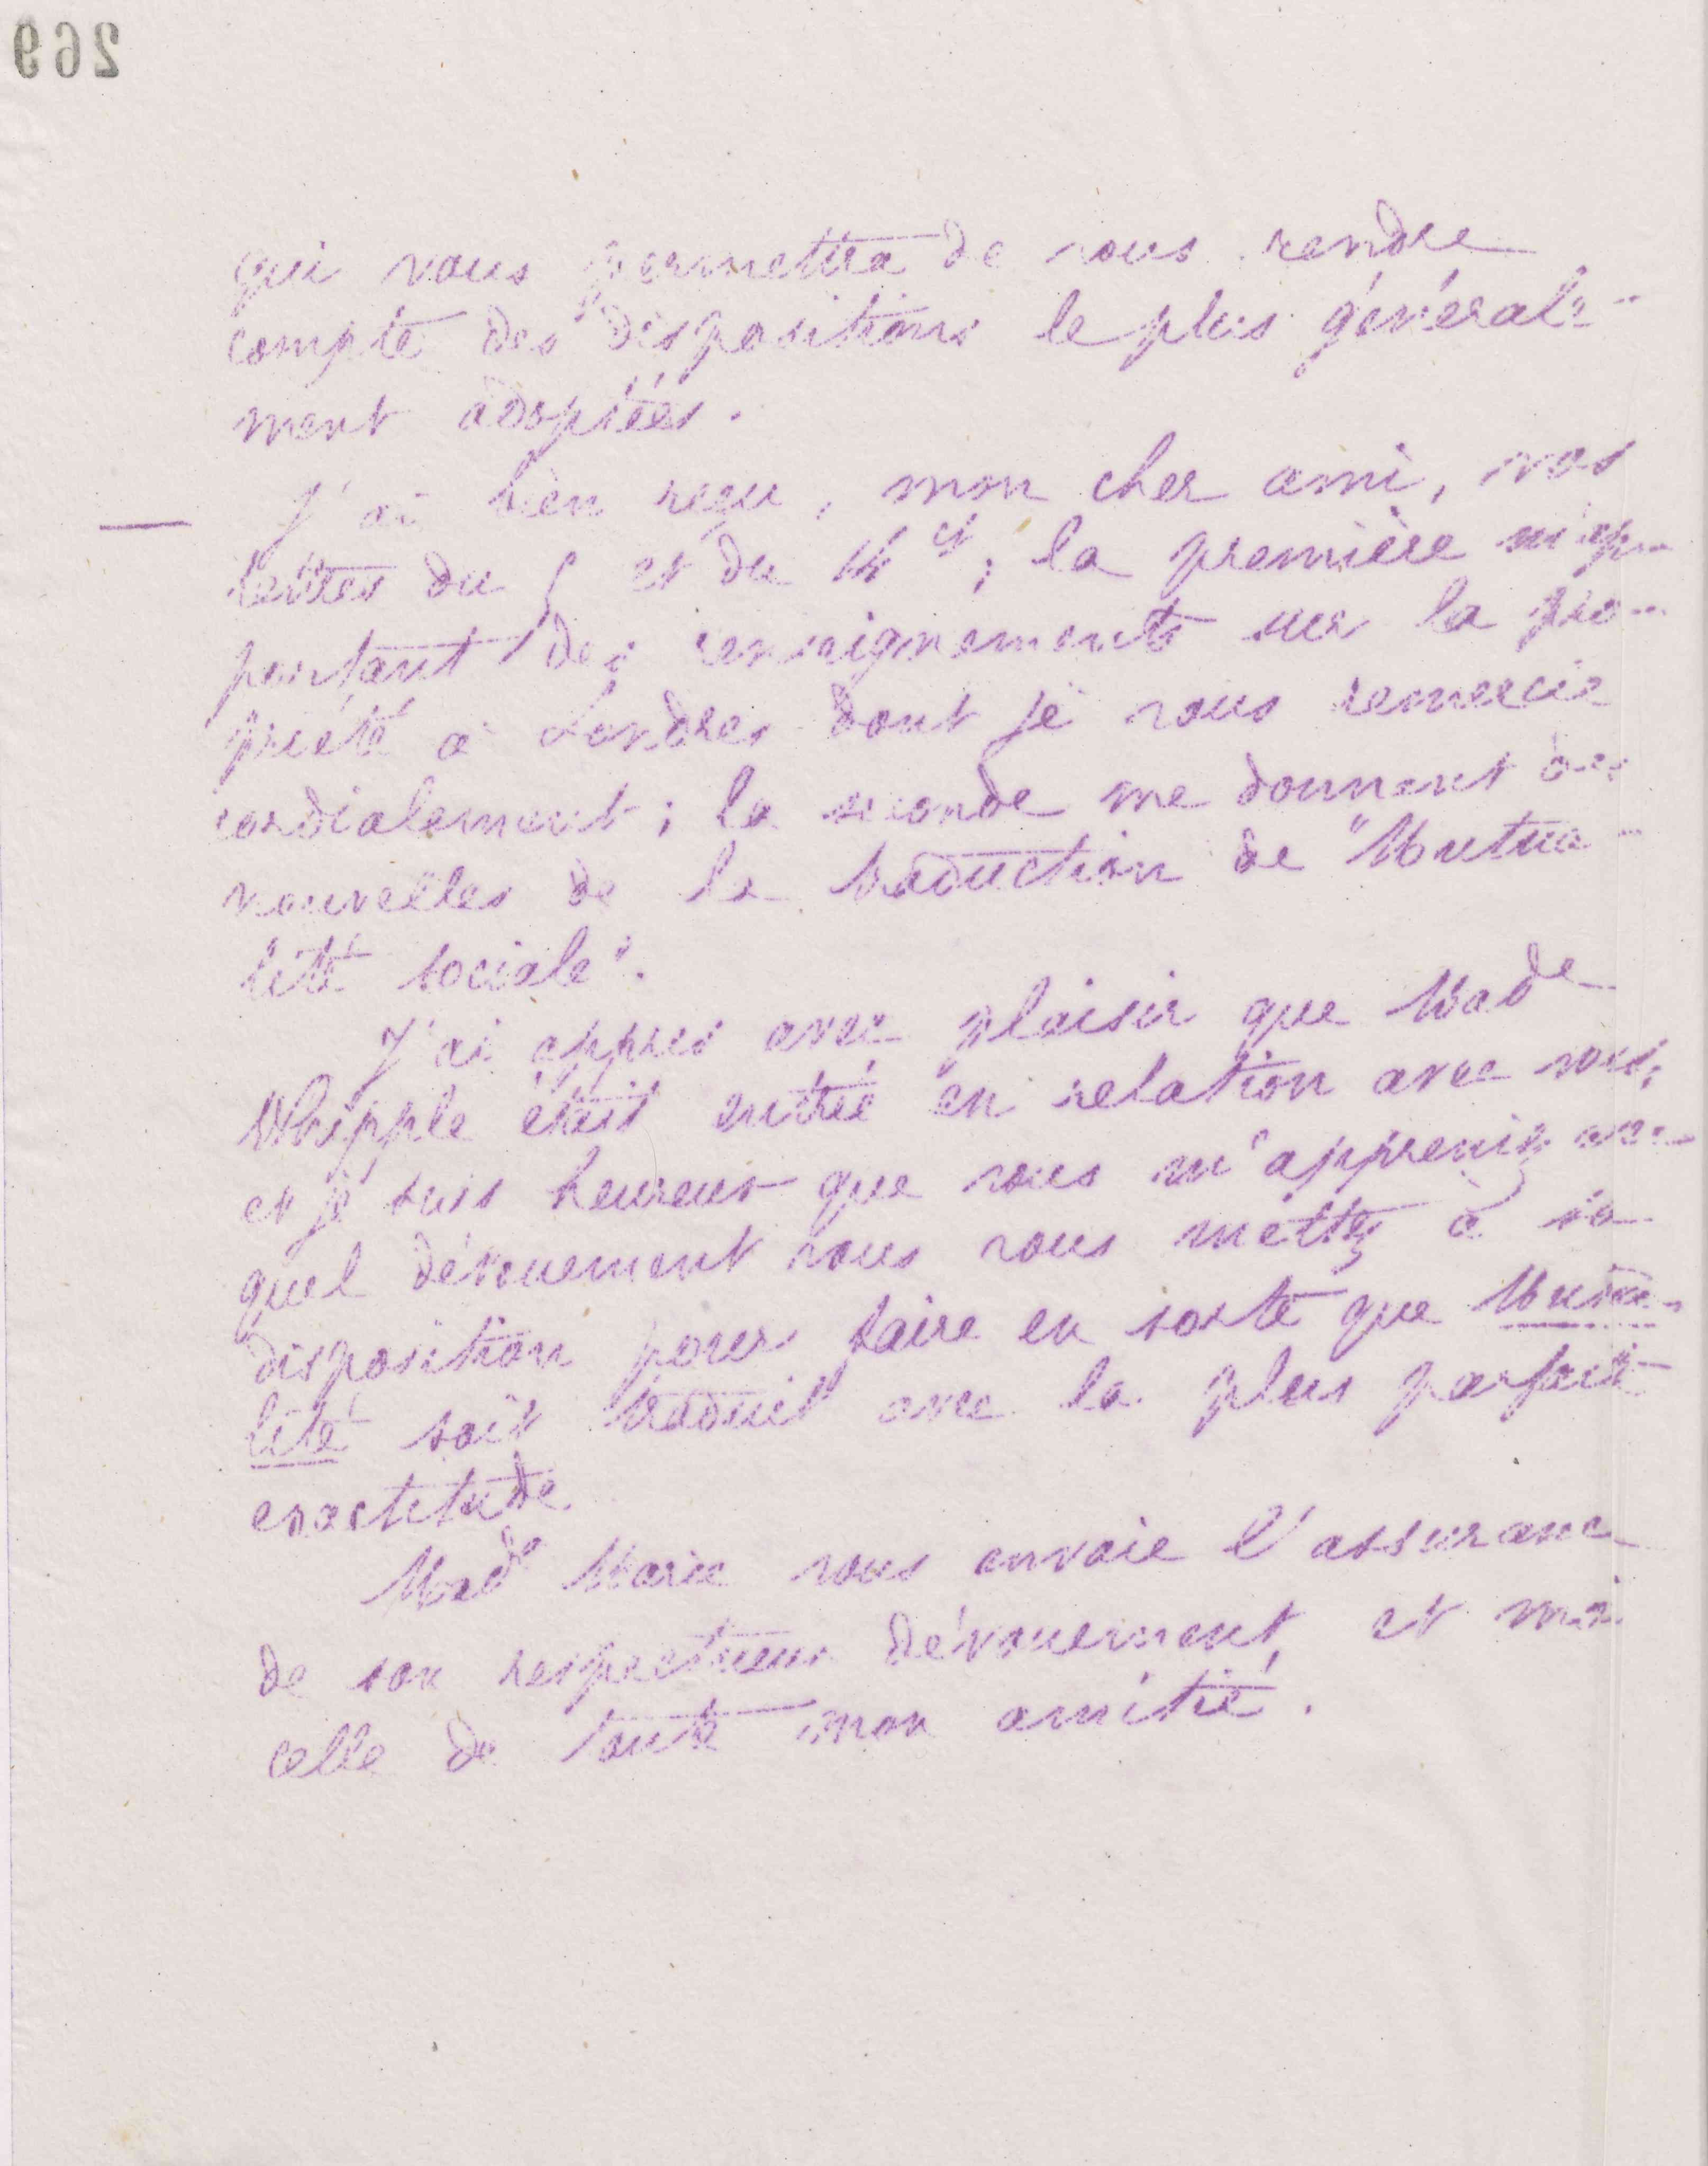 269
qui vous permettra de vous rendre
compte des dispositions le plus générale-
ment adoptées.
J'ai bien reçu, mon cher ami, vos
lettres du 5 et du 14 ct; la première m'ap-
portant des renseignements sur la pro-
priété à Londres dont je vous remercie
cordialement; la seconde me donnant des
nouvelles de la traduction de "Mutua-
lité sociale".
J'ai appris avec plaisir que Made
Whipple était entrée en relation avec vous,
et je suis heureux que vous m'appreniez avec
quel dévouement vous vous mettez à sa
disposition pour faire en sorte que Mutua-
lité soit traduit avec la plus parfaite
exactitude.
Made Marie vous envoie l'assurance
de son respectueux dévouement, et moi
celle de toute mon amitié.